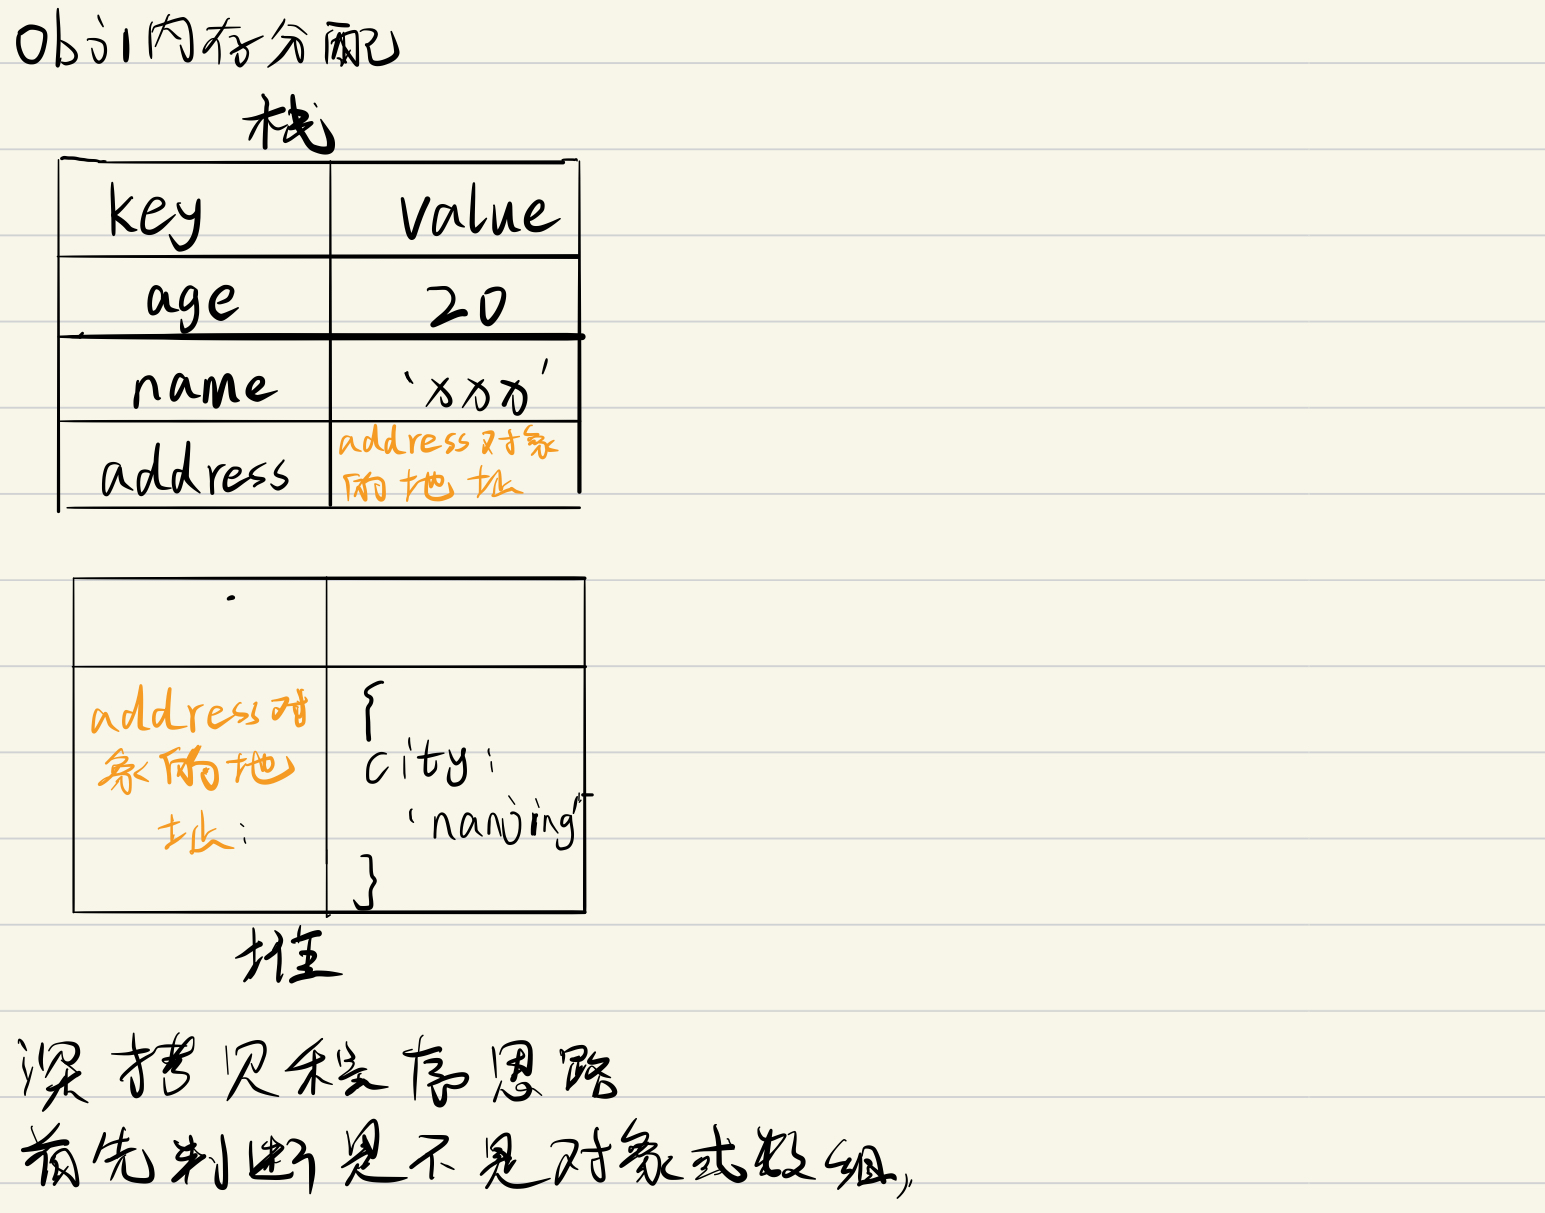 Obj1内存分配
栈
key value
age 20
name 'xxx'
address address对象
的地址
address对
象的地
址:
{
city:
'nanjing'
}
堆
深拷贝程序思路
首先判断是不是对象或数组,